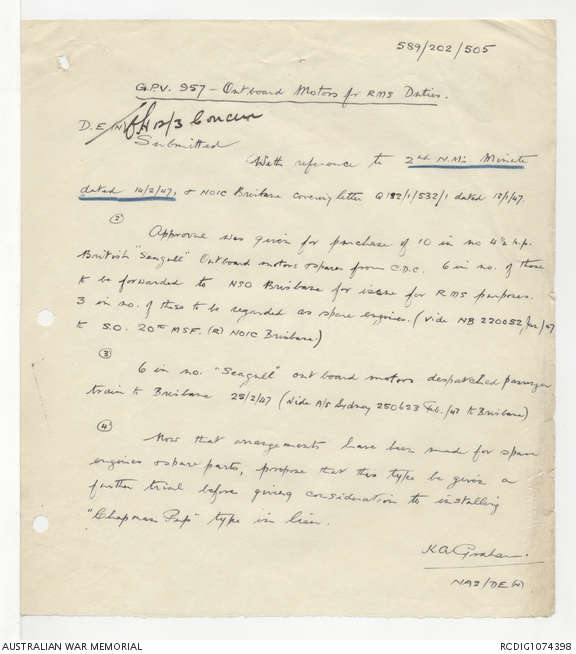 589/202/505
G.P.V. 957 - Outboard Motors for RMS Duties.
D.E.(N) 12/3 Concur
Submitted
With reference to 2nd N.M's Minute
dated 14/2/47, & NOIC Brisbane covering letter Q 192/1/532/1 dated 18/1/47.
(2)
Approval was given for purchase of 10 in no 4½ h.p.
British "Seagull" Outboard motors & spares from C.D.C. 6 in no. of these
to be forwarded to NSO Brisbane for issue for RMS purposes.
3 in no. of these to be regarded as spare engines. (Vide NB 220052/Jan/47
to S.O. 20th MSF. (R) NOIC Brisbane.)
(3)
6 in no. "Seagull" outboard motors despatched passenger
train to Brisbane 25/2/47 (Vide A/S Sydney 250623 Feb./47 to Brisbane)
(4)
Now that arrangements have been made for spare
engines & spare parts, propose that this type be given a
further trial before giving consideration to installing
"Chapman Pup" type in lieu.
K.A. Graham.
NA2/DE(N)
AUSTRALIAN WAR MEMORIAL
RCDIG1074398